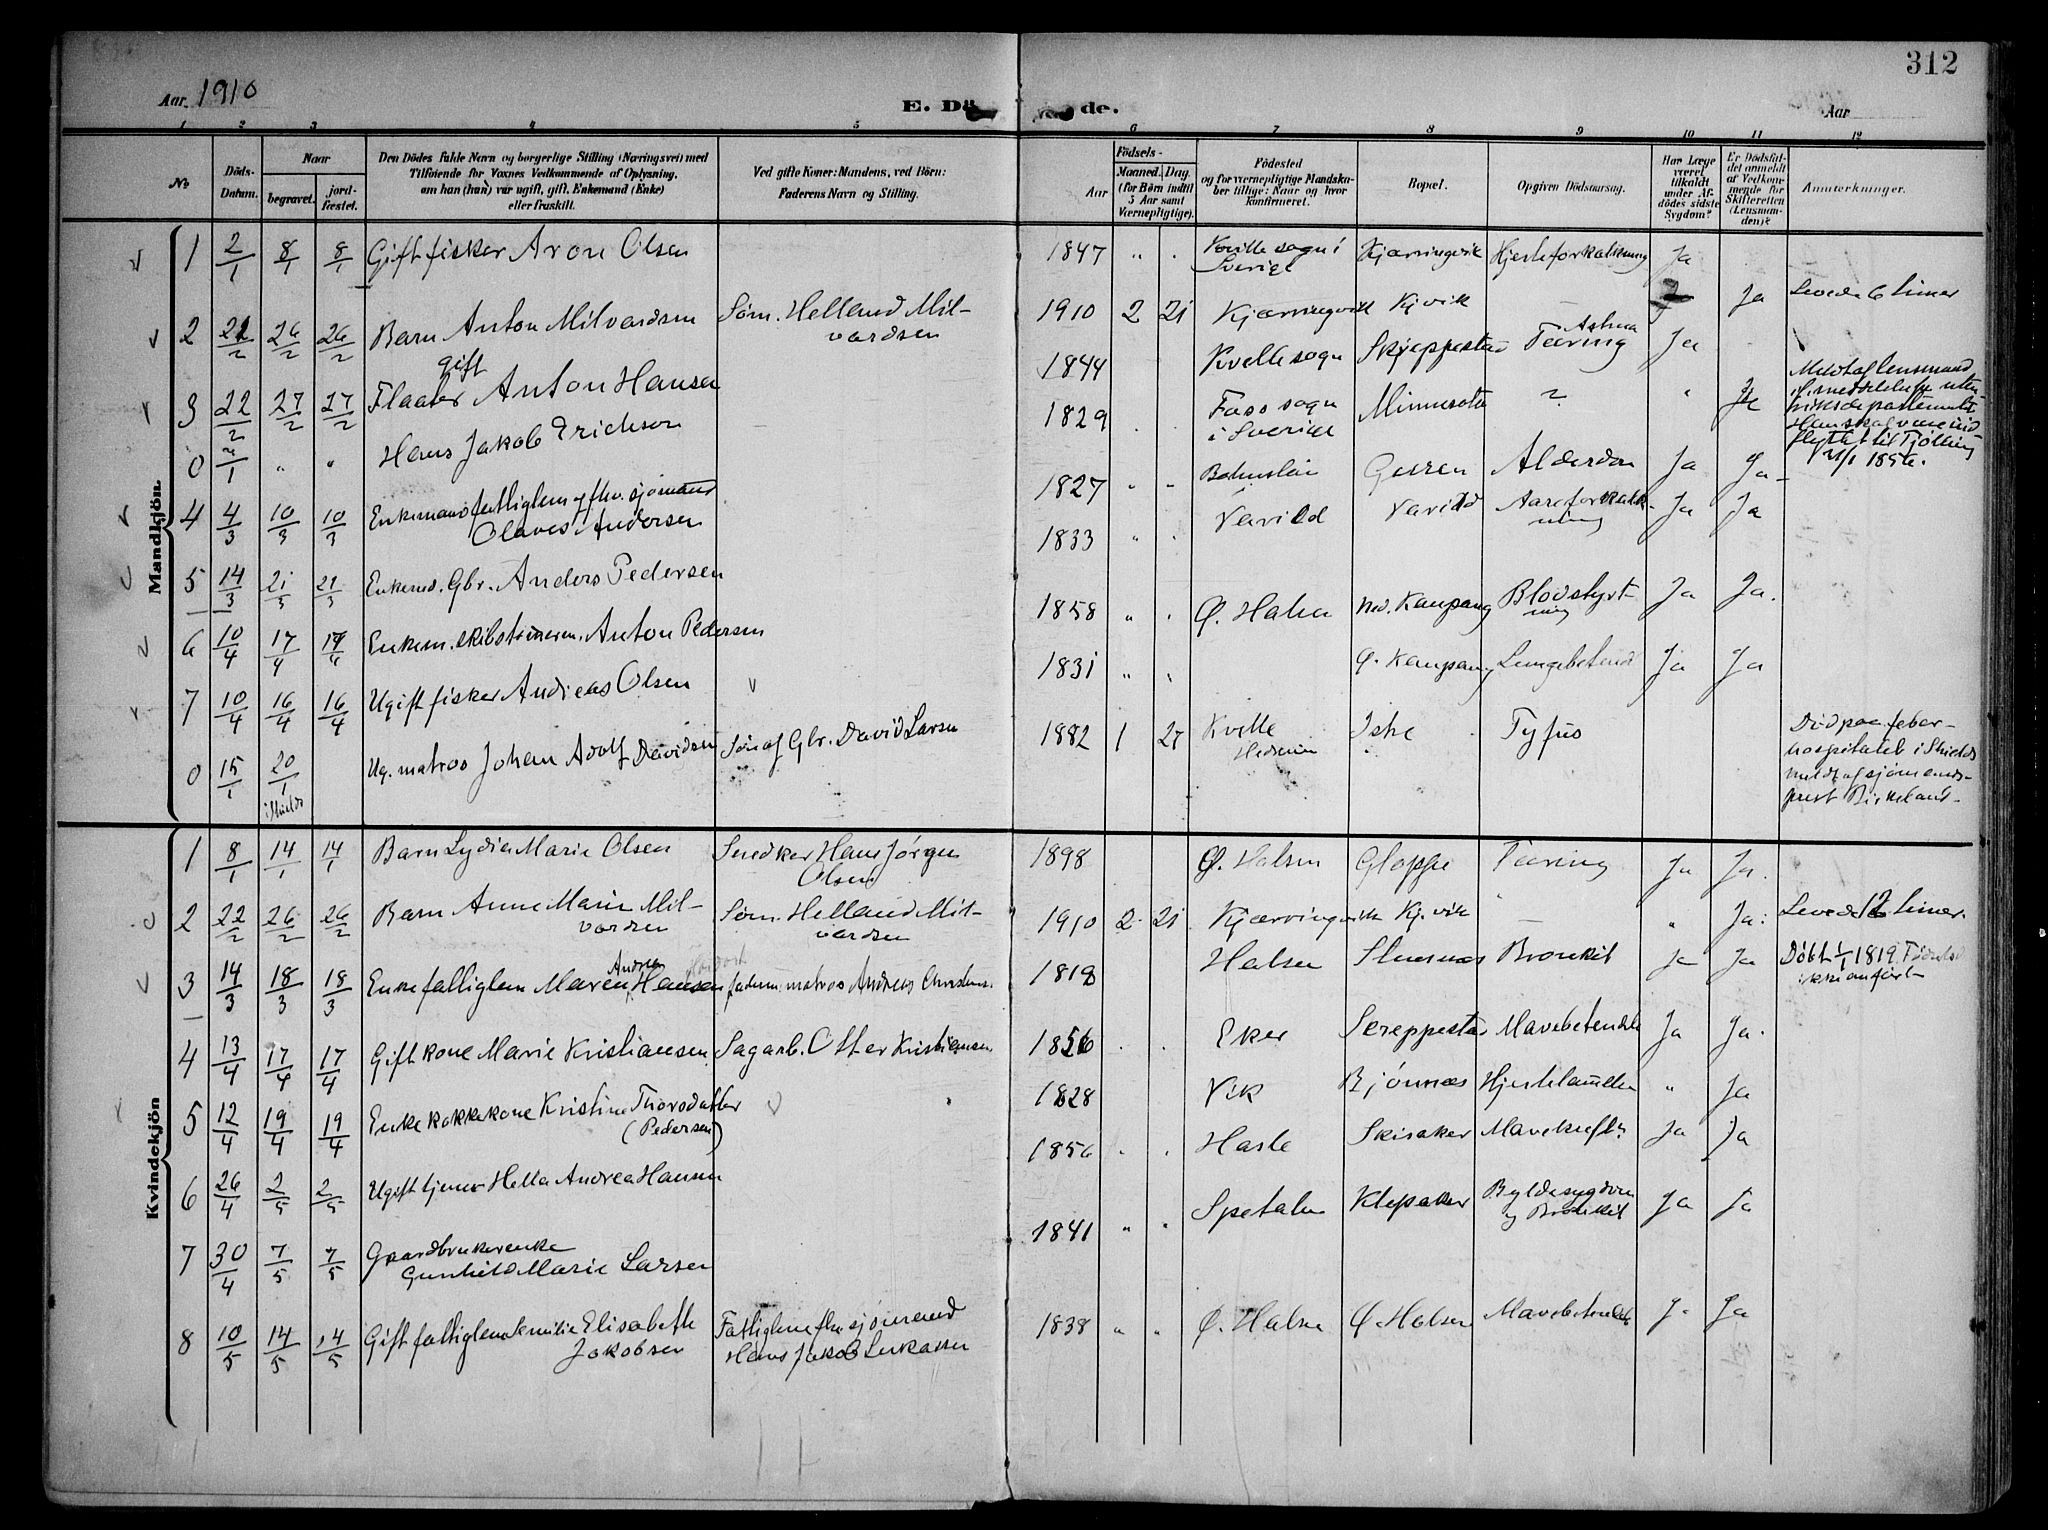 312
Aar 1910
E. Dö de.
Aar
1 2 3 4 5 6 7 8 9 10 11 12
No
Döds-Datum.
Naar
begravet.
jord-fæstet.
Den Dödes fulde Navn og borgerlige Stilling (Næringsvei) med
Tilföiende for Voxnes Vedkommende af Oplysning,
om han (hun) var ugift, gift, Enkemand (Enke)
eller fraskilt.
Ved gifte Koner: Mandens, ved Börn:
Faderens Navn og Stilling.
Födsels-
Aar
Maaned. Dag.
(for Börn indtil
5 Aar samt
Værnepligtige).
Födested
og for værnepligtige Mandska-
ber tillige: Naar og hvor
konfirmeret.
Bopæl.
Opgiven Dödsaarsag.
Har Læge
været
tilkaldt
under Af-
dödes sidste
Sygdom?
Er Dödsfal-
det anmeldt
af Vedkom-
mende for
Skifteretten
(Lensman-
den)?
Anmærkninger.
Mandkjön
1 2/1 8/1 8/1 Gift fisker Aron Olsen 1847 " Kville sogn i Sverige Kjærringvik Hjerteforkalkning Ja
2 22/2 26/2 26/2 Barn Anton Milvardsen Søm. Helland Mil-
vardsen 1910 2 21 Kjærringvik Kj.vik — Ja Levede 6 timer
3 22/2 27/2 27/2 gift
Flaater Anton Hansen 1844 Kvelle sogn Skjeppestad Astma
Tæring Ja
0 2/1 " " Hans Jakob Erickson 1829 Foss sogn
i Sverige Minnesota ? " Ja Meldt af lensmand
flyttet til Tjølling
1856.
4 4/3 10/3 10/3 Enkemand fattiglem f hv. sjømand
Olaves Andersen 1827 " " Bohuslän Gessen Alderdom Ja Ja
5 14/3 21/3 21/3 Enkemd. Gbr. Anders Pedersen 1833 " Varild Varild Aareforkalk-
ning Ja Ja
6 10/4 17/4 17/4 Enkem. skibstømrerm. Anton Pedersen 1858 " Ø. Halsen Ned. Kaupang Blodstyrt-
ning Ja Ja.
7 10/4 16/4 16/4 Ugift fisker Andreas Olsen 1831 " " Ø. Kaupang Lungebetend Ja Ja
0 15/1 20/1 i Shields Ug. matros Johan Adolf Davidsen Søn af Gbr. David Larsen 1882 1 27 Kville
Hedrum Iske Tyfus Død paa feber-
hospitalet i Shields
meldt af sjømands-
prest Birkeland.
Kvindekjön
1 8/1 14/1 14/1 Barn Lydia Marie Olsen Snedker Hans Jørgen
Olsen 1898 Ø. Halsen Gloppe Tæring Ja Ja.
2 22/2 26/2 26/2 Barn Anne Marie Mil-
vardsen Søm. Helland Mil-
vardsen 1910 2 21 Kjærringvik Kj.vik — " Ja. Levede 12 timer.
3 14/3 18/3 18/3 Enke fattiglem Maren Andrea Hansen fader: matros Andreas Christens. 1818 Halsen Stuernæs Bronkit Ja Ja Døbt 1/1 1819. Fødselsd.
ikke anført
4 13/4 17/4 17/4 Gift kone Marie Kristiansen Sagarb. Otter Kristiansen 1856 Eker Skreppestad Mavebetendelse Ja Ja.
5 12/4 19/4 19/4 Enke kokkekone Kristine Thorsdatter
(Pedersen) 1828 Vik Bjørnnæs Hjertelammelse " Ja
6 26/4 2/5 2/5 Ugift tjener Hella Andrea Hansen 1856 Hasle Skisaker Mavekreft Ja Ja
7 30/4 7/5 7/5 Gaardbrukerenke
Gunhild Marie Larsen 1841 " " Spetalen Klepaker Byldesygdom
og Bronkit Ja Ja
8 10/5 14/5 14/5 Gift fattiglem Emilie Elisabeth
Jakobsen Fattiglem fhv sjømand
Hans Jakob Lukassen 1838 " " Ø. Halsen Ø Halsen Mavebetendelse Ja Ja